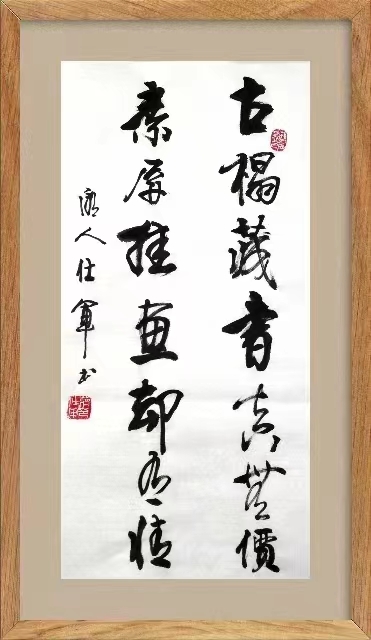 古榻藏書真無價
素屏挂畫却有情
人仕軍书